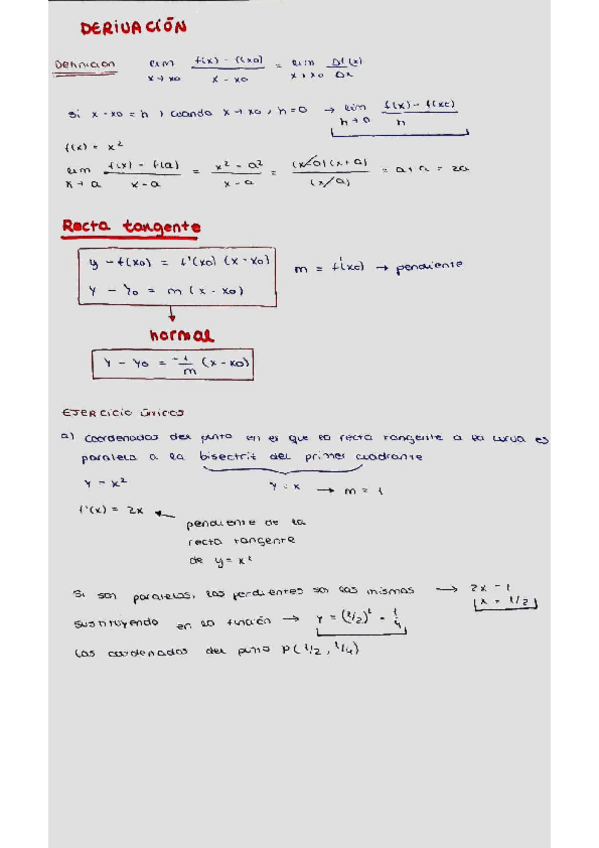 DERIVACIÓN
Definición lim f(x) - f(x0) / x - x0 = lim Δf(x) / Δx
x→x0 x→x0
Si x - x0 = h, cuando x→x0, h=0 → lim f(x) - f(x0) / h
h→0
f(x) = x²
lim f(x) - f(a) / x - a = x² - a² / x - a = (x-a)(x+a) / (x-a) = a+a = 2a
x→a
Recta tangente
y - f(x0) = f'(x0) (x - x0)
m = f'(x0) → pendiente
Y - Y0 = m (x - x0)
normal
Y - Y0 = -1/m (x - x0)
EJERCICIO únicos
a) Coordenadas del punto en el que la recta tangente a la curva es
paralela a la bisectriz del primer cuadrante
Y = x² Y = x → m = 1
f'(x) = 2x
pendiente de la
recta tangente
de y = x²
Si son paralelas, las pendientes son las mismas → 2x = 1
x = 1/2
sustituyendo en la función → Y = (1/2)² = 1/4
Las coordenadas del punto P(1/2, 1/4)